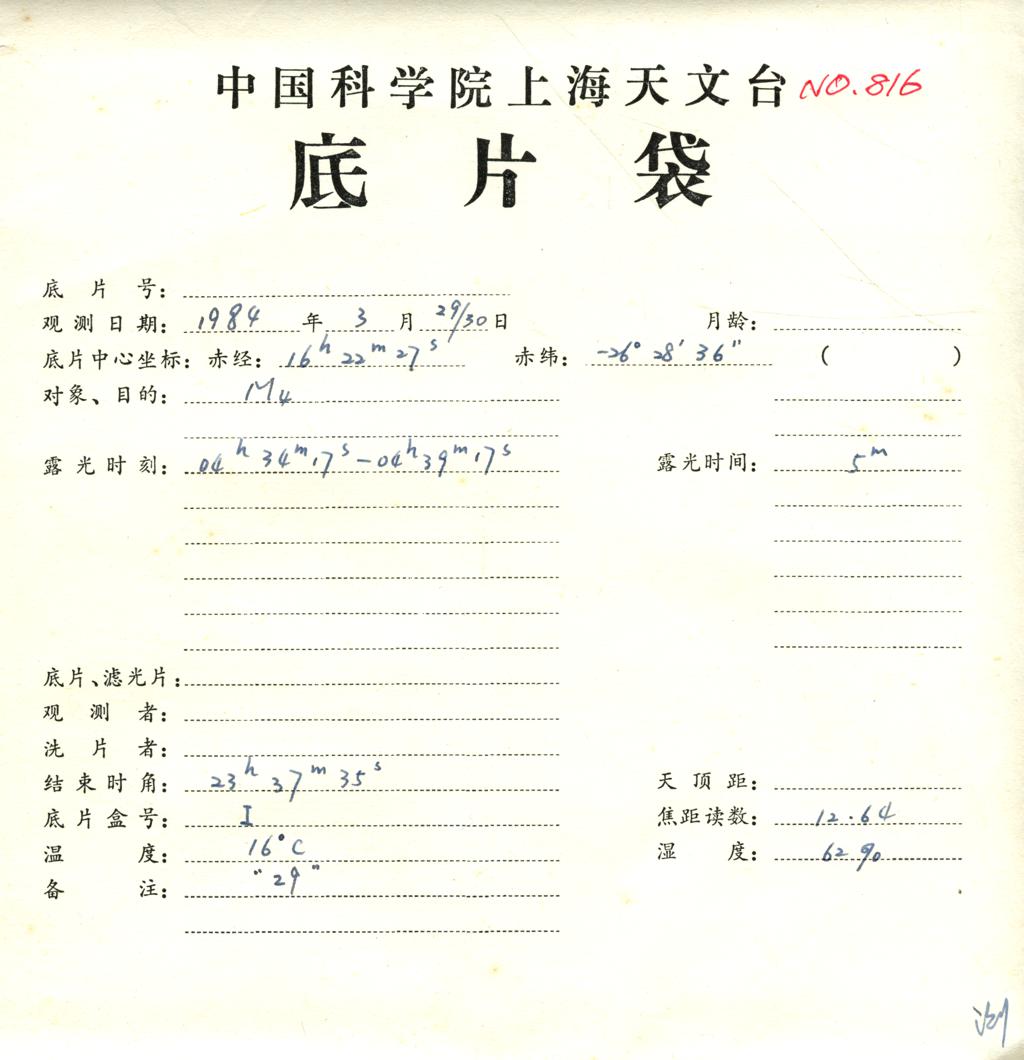 中国科学院上海天文台 NO.816
底片袋
底片号：
观测日期：1984年3月29/30日 月龄：
底片中心坐标：赤经：16h22m27s 赤纬：-26°28′36″ （ ）
对象、目的：M4
露光时刻：04h34m17s-04h39m17s 露光时间：5m
底片、滤光片：
观测者：
洗片者：
结束时角：23h37m35s 天顶距：
底片盒号：I 焦距读数：12.64
温度：16°C 湿度：62%
备注："29"